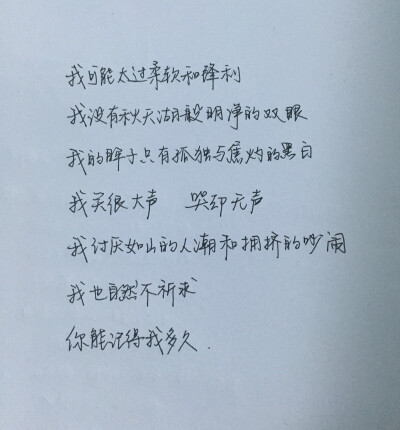 我可能太过柔软和锋利
我没有秋天湖般明净的双眼
我的眸子只有孤独与焦灼的黑白
我笑很大声 哭却无声
我讨厌如山的人潮和拥挤的吵闹
我也自然不祈求
你能记得我多久.